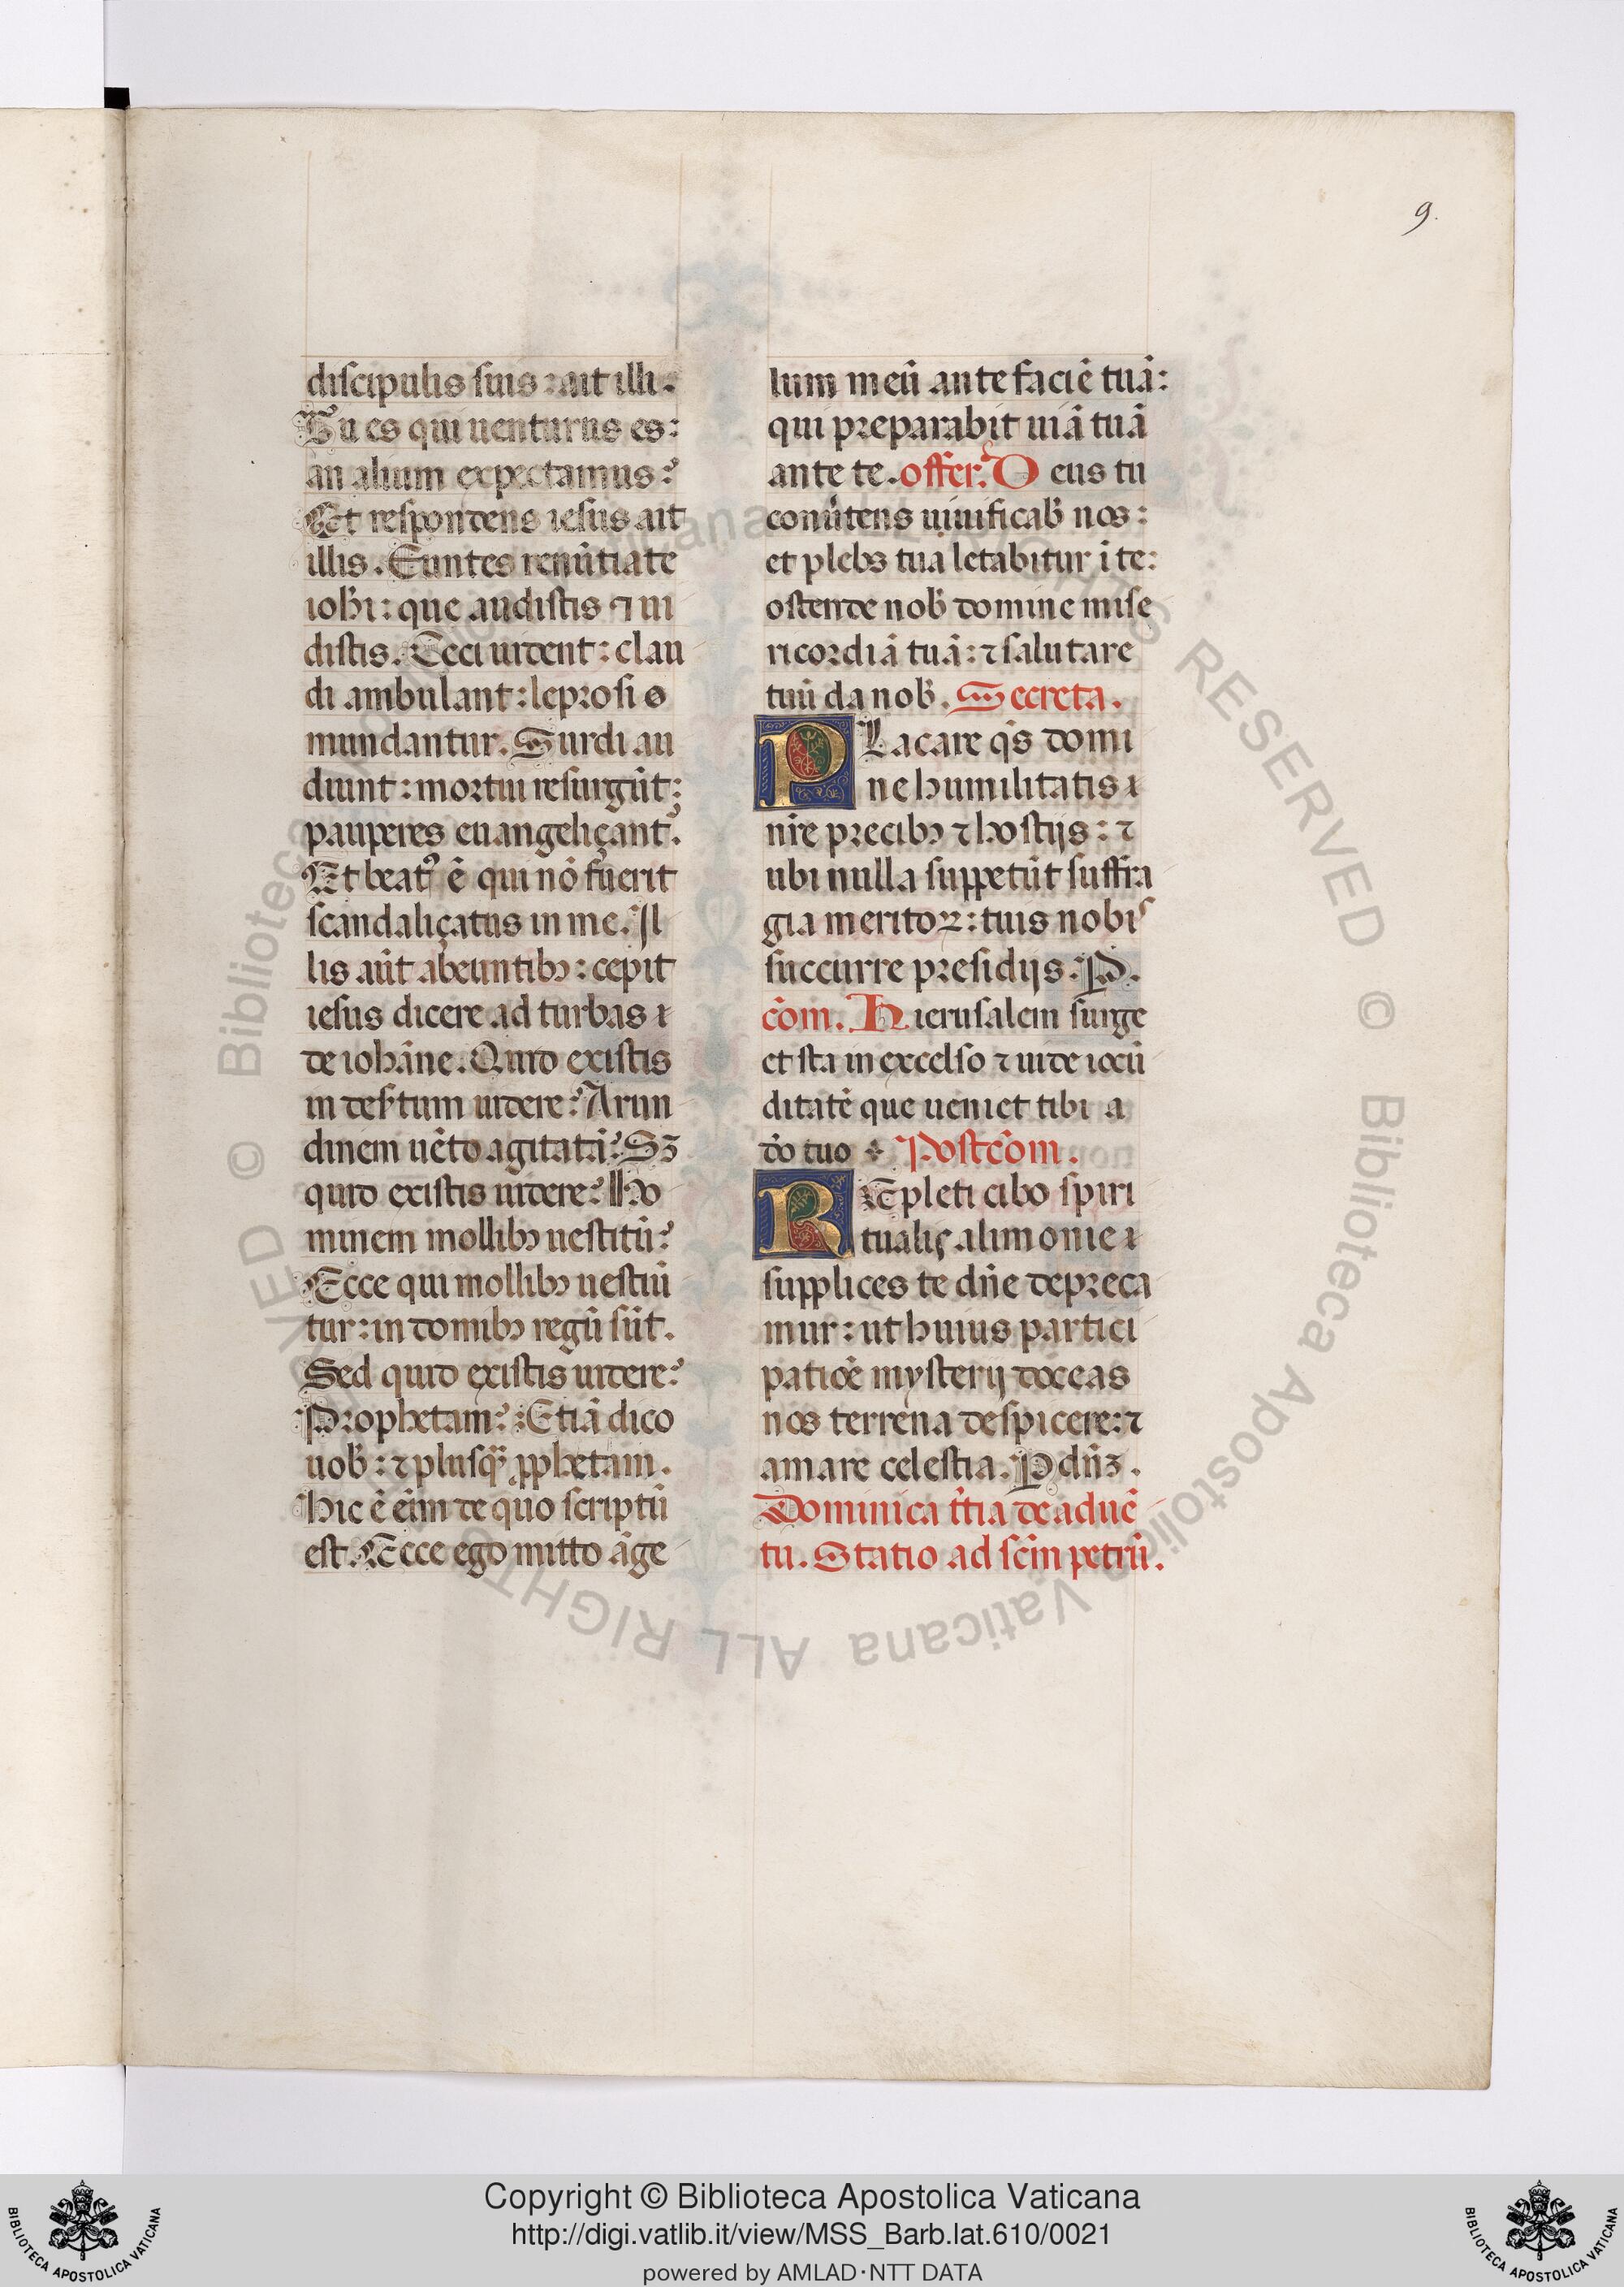 9.
discipulis suis : ait illi.
Tu es qui uenturus es:
an alium expectamus?
Et respondens iesus ait
illis. Euntes renũtiate
iohi̅ : que audistis ⁊ ui
distis. Ceci uident : clau
di ambulant : leprosi
mundantur. Surdi au
diunt : mortui resurgũt:
pauperes euangeliçant.
Et beatꝰ ẽ qui nõ fuerit
scandaliçatus in me. Il
lis aũt abeuntibꝫ : cepit
iesus dicere ad turbas
de iohãne. Quid existis
in des̾tum uidere? Arun
dinem uẽto agitatã? Sꝫ
quid existis uidere? Ho
minem mollibꝫ uestitũ?
Ecce qui mollibꝫ uestiũ
tur : in domibꝫ regũ sũt.
Sed quid existis uidere?
Prophetam? Etiã dico
uob̾ : ⁊ plusq̃ ꝓphetam.
hic ẽ eĩm de quo scriptũ
est. Ecce ego mitto ãge
lum meũ ante faciẽ tuã:
qui preparabit uiã tuã
ante te. offer. Deus tu
conũtens uiuificab̾ nos:
et plebs tua letabitur ĩ te:
ostende nob̾ domine mise
ricordiã tuã : ⁊ salutare
tuũ da nob̾. Secreta.
PLacare q̃s domi
ne humilitatis
nr̃e precibꝫ ⁊ hostijs : ⁊
ubi nulla suppetũt suffra
gia meritoꝝ : tuis nobis
succurre presidijs. P.
cõm. Hierusalem surge
et sta in excelso ⁊ uide iocũ
ditatẽ que ueniet tibi a
dõ tuo Postcõm.
REpleti cibo spiri
tualis alimonie
supplices te dñe depreca
mur : ut huius partici
patiõe mysterij doceas
nos terrena despicere : ⁊
amare celestia. P dñꝫ.
Dominica t̃tia de aduẽ
tu. Statio ad sc̃m petrũ.
© Biblioteca Apostolica Vaticana ALL RIGHTS RESERVED
Copyright © Biblioteca Apostolica Vaticana
http://digi.vatlib.it/view/MSS_Barb.lat.610/0021
powered by AMLAD·NTT DATA
BIBLIOTECA APOSTOLICA VATICANA
BIBLIOTECA APOSTOLICA VATICANA